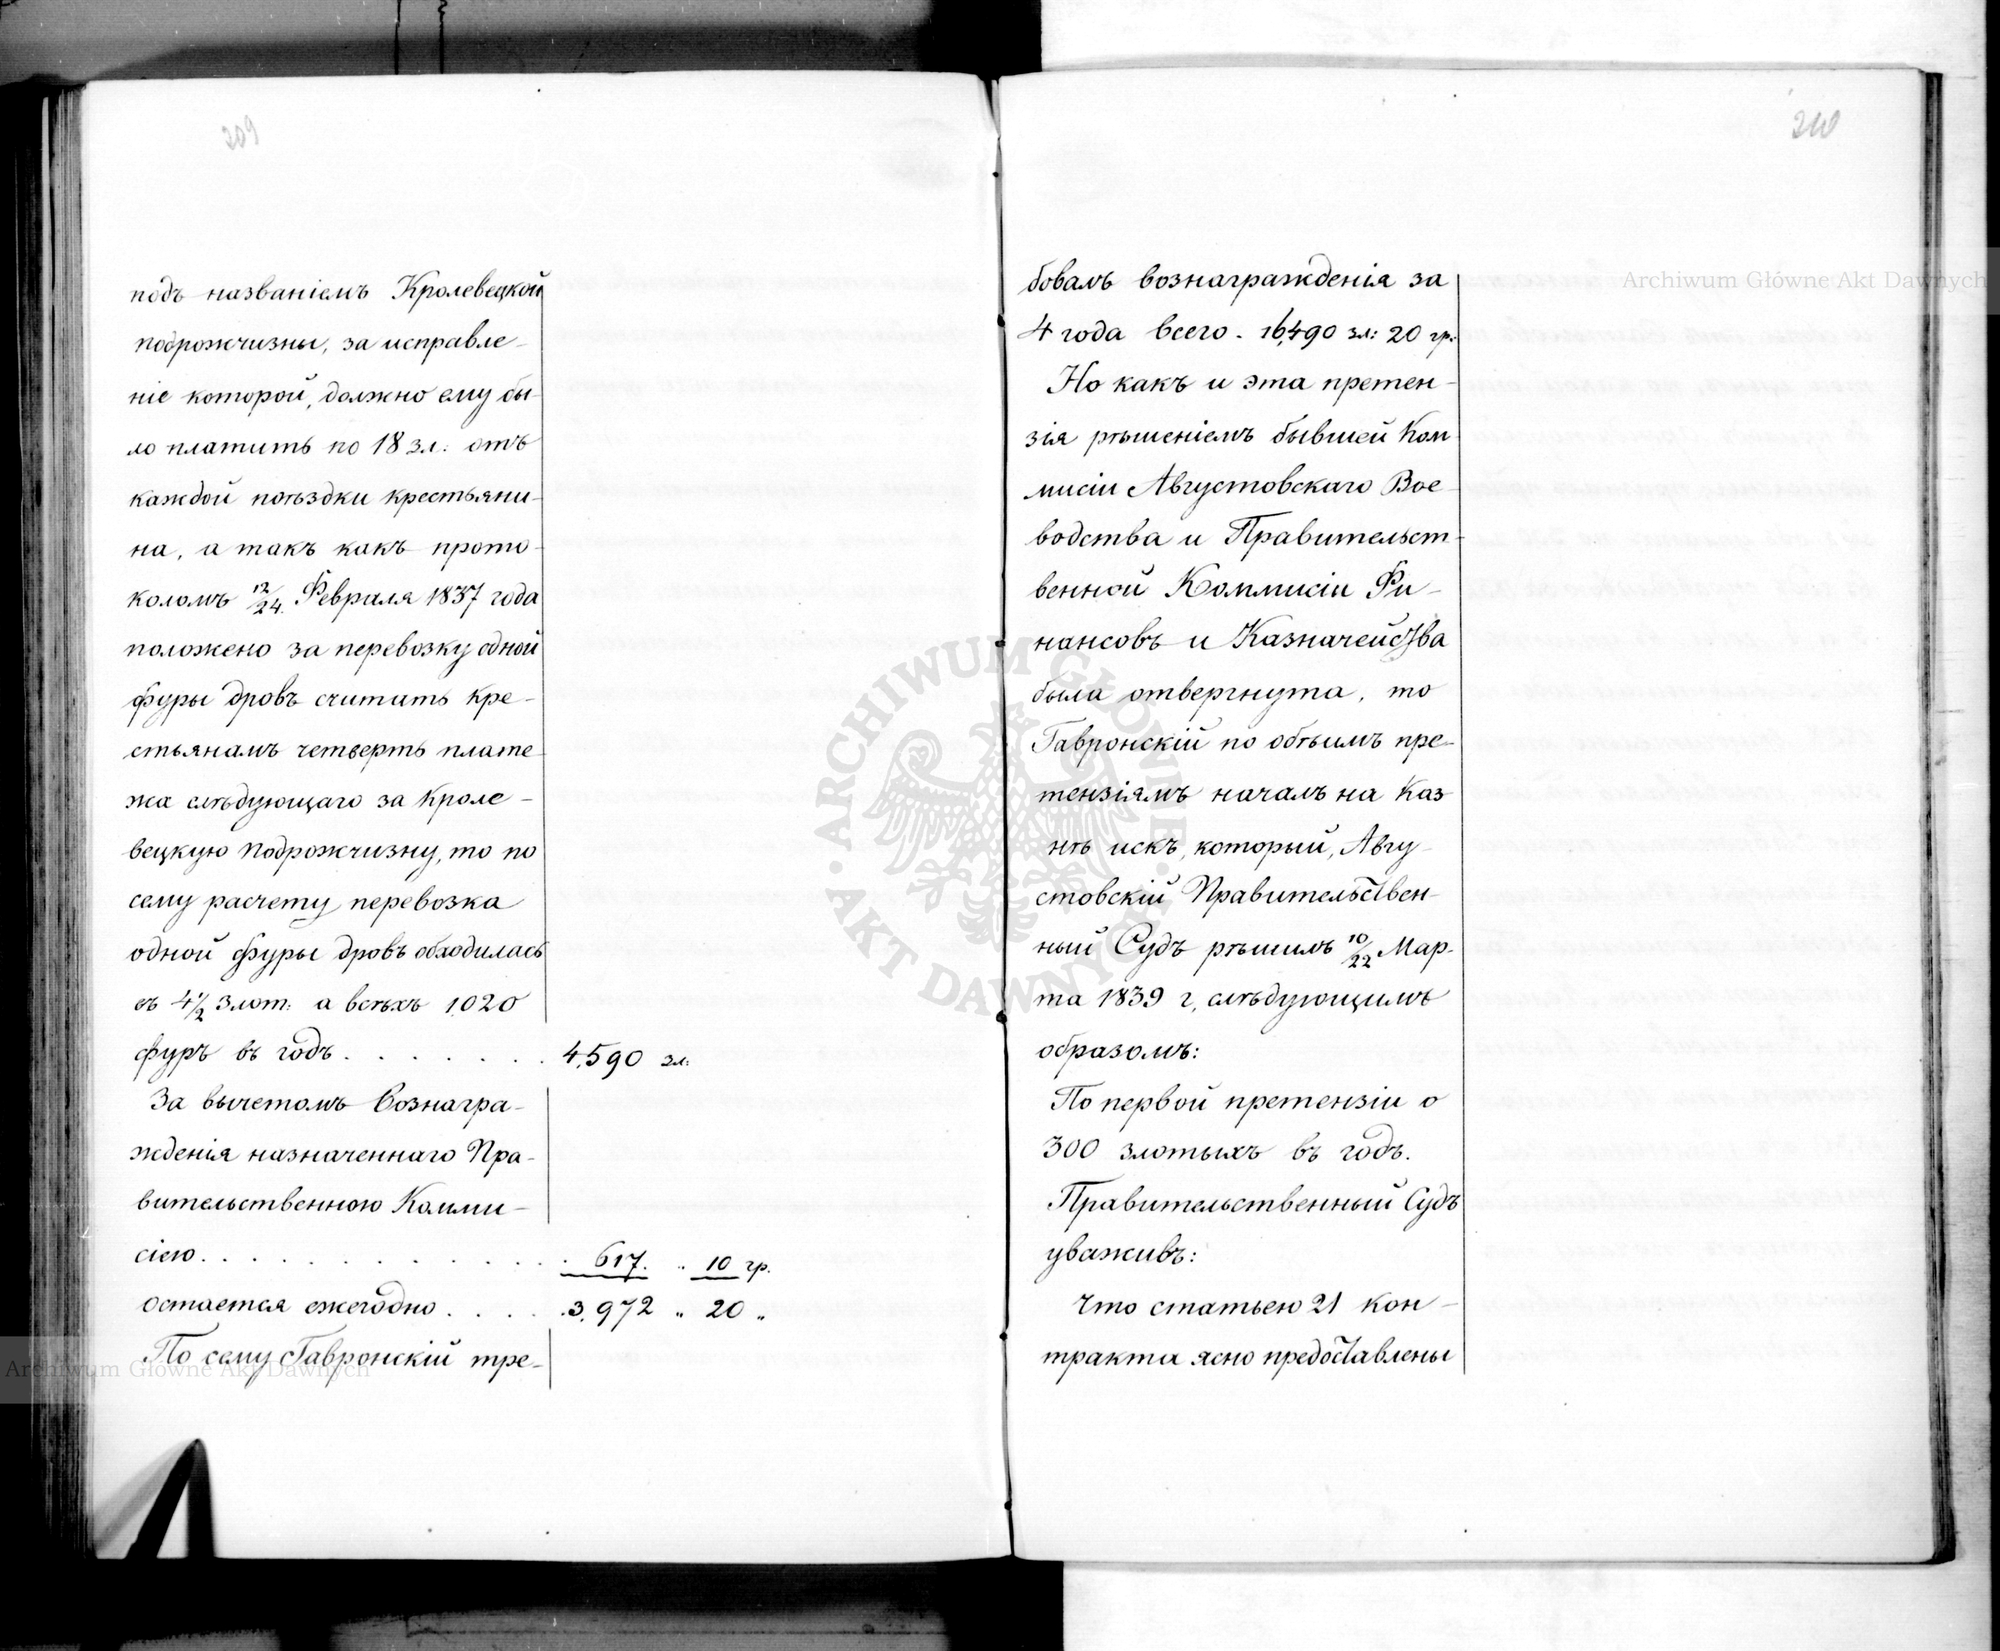 209
подъ названіемъ Кролевецкой
подрожчизны, за исправле-
ніе которой, должно ему бы-
ло платить по 18 зл: отъ
каждой поѣздки крестьяни-
на, а такъ какъ прото-
коломъ 12/24 Февраля 1837 года
положено за перевозку одной
фуры дровъ считать кре-
стьянамъ четверть плате-
жа слѣдующаго за Кроле-
вецкую подрожчизну, то по
сему расчету перевозка
одной фуры дровъ обходилась
въ 4 1/2 Злот: а всѣхъ 1020
фуръ въ годъ . . . . . . . 4,590 зл:
За вычетомъ вознагра-
жденія назначеннаго Пра-
вительственною Комми-
сіею . . . . . . . . . . . 617. „ 10 гр.
остается ежегодно . . . . . 3,972 „ 20 „
По сему Гавронскій тре-
210
бовалъ вознагражденія за
4 года всего - 16,490 зл: 20 гр:
Но какъ и эта претен-
зія рѣшеніемъ бывшей Ком
мисіи Августовскаго Вое-
водства и Правительст-
венной Коммисіи Фи-
нансовъ и Казначейства
была отвергнута, то
Гавронскій по обѣимъ пре-
тензіямъ началъ на Каз
нѣ искъ, который, Авгу-
стовскій Правительствен-
ный Судъ рѣшилъ 10/22 Мар-
та 1839 г, слѣдующимъ
образомъ:
По первой претензіи о
300 злотыхъ въ годъ.
Правительственный Судъ
уваживъ:
Что статьею 21 кон-
тракта ясно предоставлены
Archiwum Główne Akt Dawnych
Archiwum Główne Akt Dawnych
ARCHIWUM GŁÓWNE · AKT DAWNYCH ·